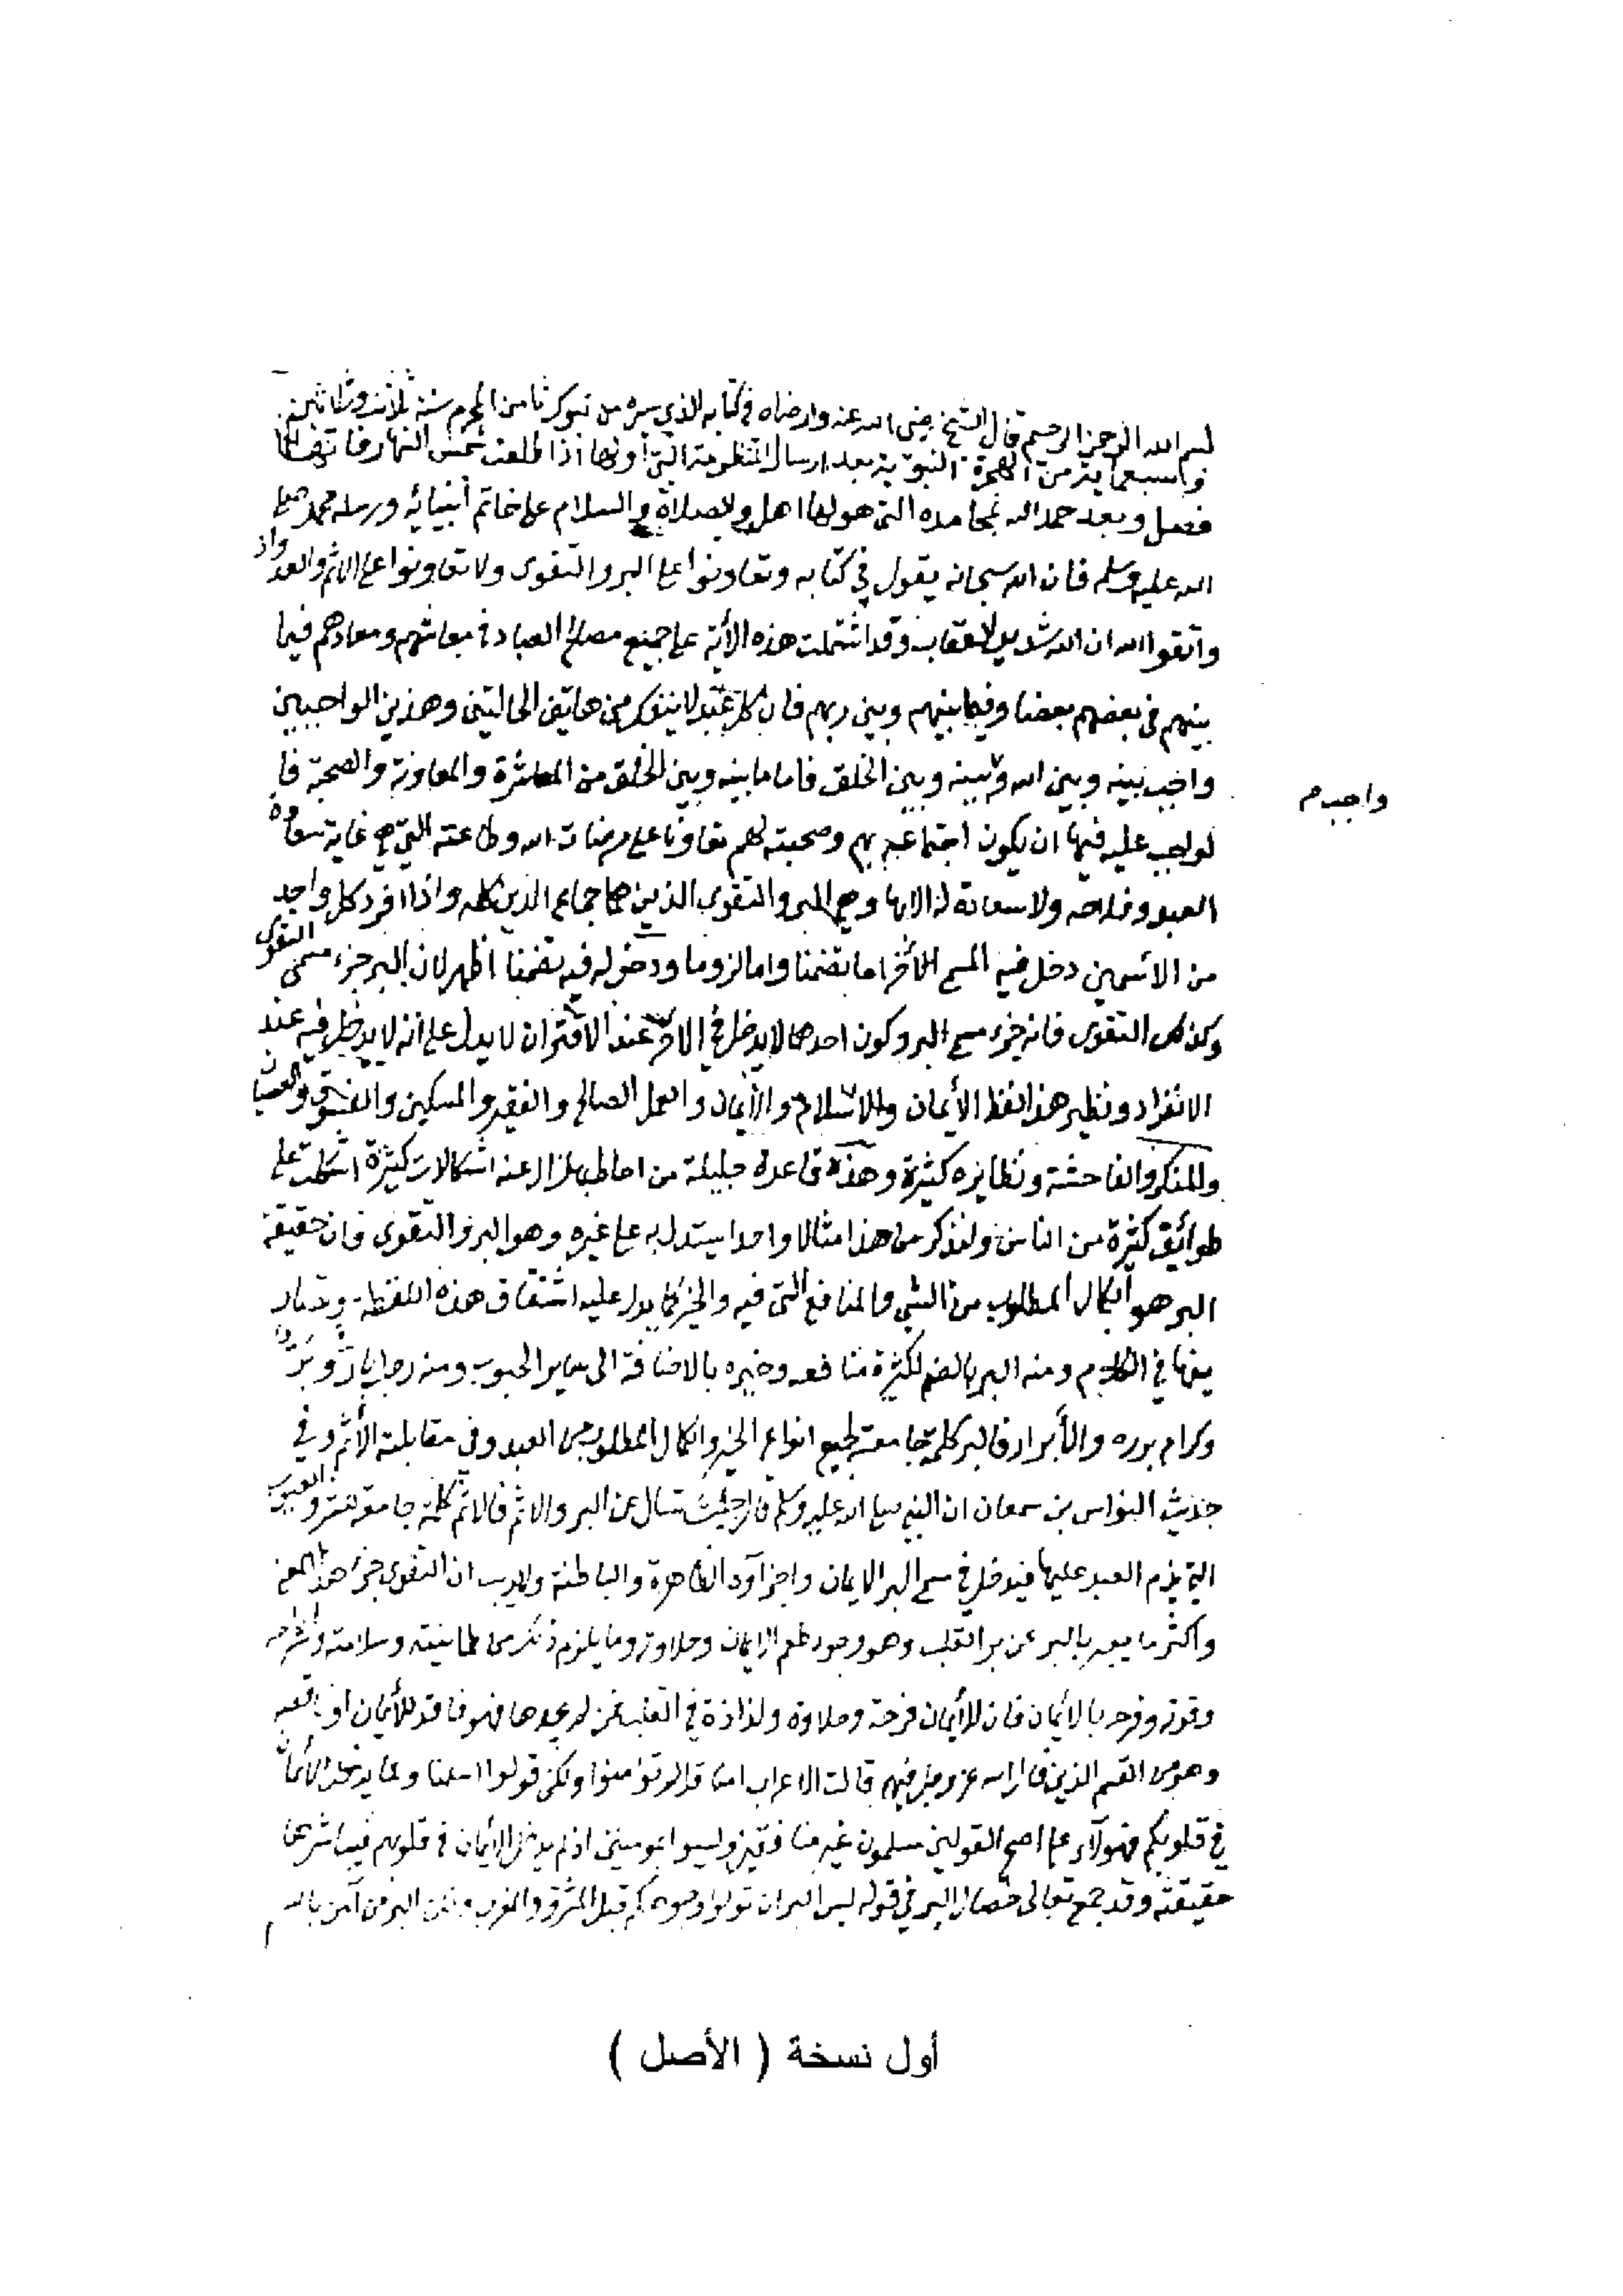 بسم الله الرحمن الرحيم قال الشيخ رضي الله عنه وارضاه في كتابه الذي سيره من تبوك ثامن المحرم سنة ثلاث وثلاثين
وسبعماية من الهجرة النبوية بعد ارسال المنظومة التي أولها اذا طلعت شمس النهار فانها
فصل وبعد حمد الله بمحامده التي هو لها اهل والصلاة والسلام على خاتم أنبيائه ورسله محمد صلى
الله عليه وسلم فان الله سبحانه يقول في كتابه وتعاونوا على البر والتقوى ولا تعاونوا على الاثم والعدوان
واتقوا الله ان الله شديد العقاب وقد اشتملت هذه الأية على جميع مصالح العباد في معاشهم ومعادهم فيما
بينهم في بعضهم بعضا وفيما بينهم وبين ربهم فان كل عبد لا ينفك من هاتين الحالتين وهذين الواجبين
واجب بينه وبين الله وبينه وبين الخلق فاما ما بينه وبين الخلق من المعاشرة والمعاونة والصحبة فا
واجب م
لواجب عليه فيها ان يكون اجتماعه بهم وصحبته لهم تعاونا على مرضات الله وطاعته التي هي غاية سعادة
العبد وفلاحه ولا سعادة له الا بها وهي البر والتقوى الذين هما جماع الدين كله واذا افرد كل واحد
من الاسمين دخل فيه المسمى الأخر اما تضمنا واما لزوما ودخوله فيه تضمنا اظهر لان البر جزء مسمى التقوى
وكذلك التقوى فانه جزء مسمى البر وكون احدهما لا يدخل في الاخر عند الاقتران لا يدل على انه لا يدخل فيه عند
الانفراد ونظير هذا لفظ الأيمان والاسلام والأيمان والعمل الصالح والفقير والمسكين والفسوق والعصيان
والمنكر والفاحشة ونظايره كثيرة وهذه قاعدة جليلة من احاط بها زال عنه اشكالات كثيرة اشكلت على
طوائق كثيرة من الناس ولنذكر من هذا مثالا واحدا يستدل به على غيره وهو البر والتقوى فان حقيقة
البر هو الكمال المطلوب من الشي والمنافع التي فيه والخير كما يدل عليه اشتقاق هذه اللفظة وتصار
يفها في الكلام ومنه البر بالضم لكثرة منافعه وخيره بالاضافة الى ساير الحبوب ومنه رجل بار وبر
وكرام برره والأبرار فالبر كلمة جامعة لجميع انواع الخير والكمال المطلوب من العبد وفي مقابلته الأثم وفي
حديث النواس بن سمعان ان النبي صلى الله عليه وسلم قال جئت تسال عن البر والاثم فالاثم كلمة جامعة للشر والعيوب
التي يذم العبد عليها فيدخل في مسمى البر الايمان واجزآوه الظاهرة والباطنة ولا ريب ان التقوى جزء هذا المعنى
واكثر ما يعبر بالبر عن بر القلب وهو وجود طعم الايمان وحلاوته وما يلزم ذلك من طمانينته وسلامته وانشراحه
وقوته وفرحه بالأيمان فان للأيمان فرحة وحلاوة ولذاذة في القلب فمن لم يجدها فهو فاقد للأيمان او ناقصه
وهو من القسم الذين قال الله عز وجل فيهم قالت الاعراب امنا قل لم تؤمنوا ولكن قولوا اسلمنا ولما يدخل الأيمان
في قلوبكم فهؤلآء على اصح القولين مسلمون غير منافقين وليسوا بمومنين اذ لم يدخل الأيمان في قلوبهم فيباشرها
حقيقته وقد جمع تعالى خصال البر في قوله ليس البر ان تولوا وجوهكم قبل المشرق والمغرب ولكن البر من آمن بالله
أول نسخة ( الأصل )